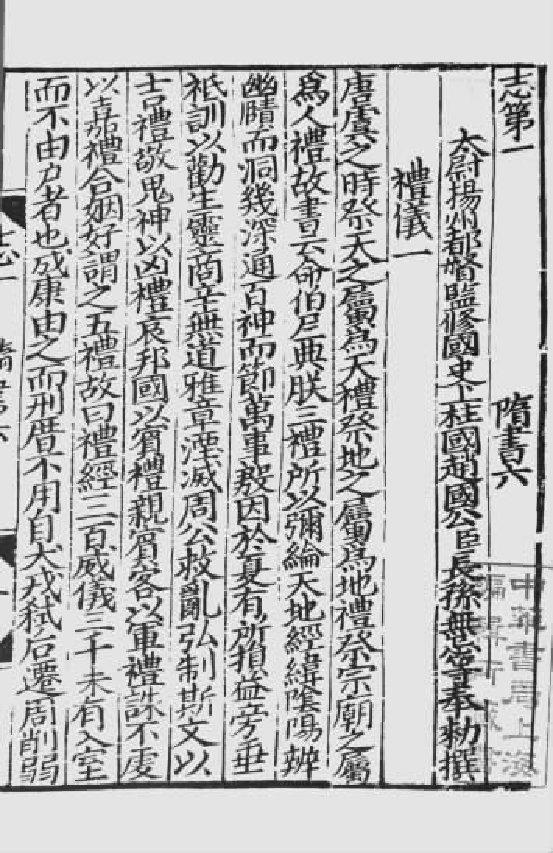 志第一　隋書六
太尉揚州都督監修國史上柱國趙國公臣長孫無忌等奉勑撰
禮儀一
唐虞之時祭天之屬爲天禮祭地之屬爲地禮祭宗廟之屬
爲人禮故書云命伯夷典朕三禮所以彌綸天地經緯隂陽辨
幽賾而洞幾深通百神而節萬事殷因於夏有所損益旁垂
祗訓以勸生靈商辛無道雅章湮滅周公救亂弘制斯文以
吉禮敬鬼神以凶禮哀邦國以賔禮親賔客以軍禮誅不虔
以嘉禮合姻好謂之五禮故曰禮經三百威儀三千未有入室
而不由户者也成康由之而刑厝不用自犬戎弑后遷周削弱
中華書局上海